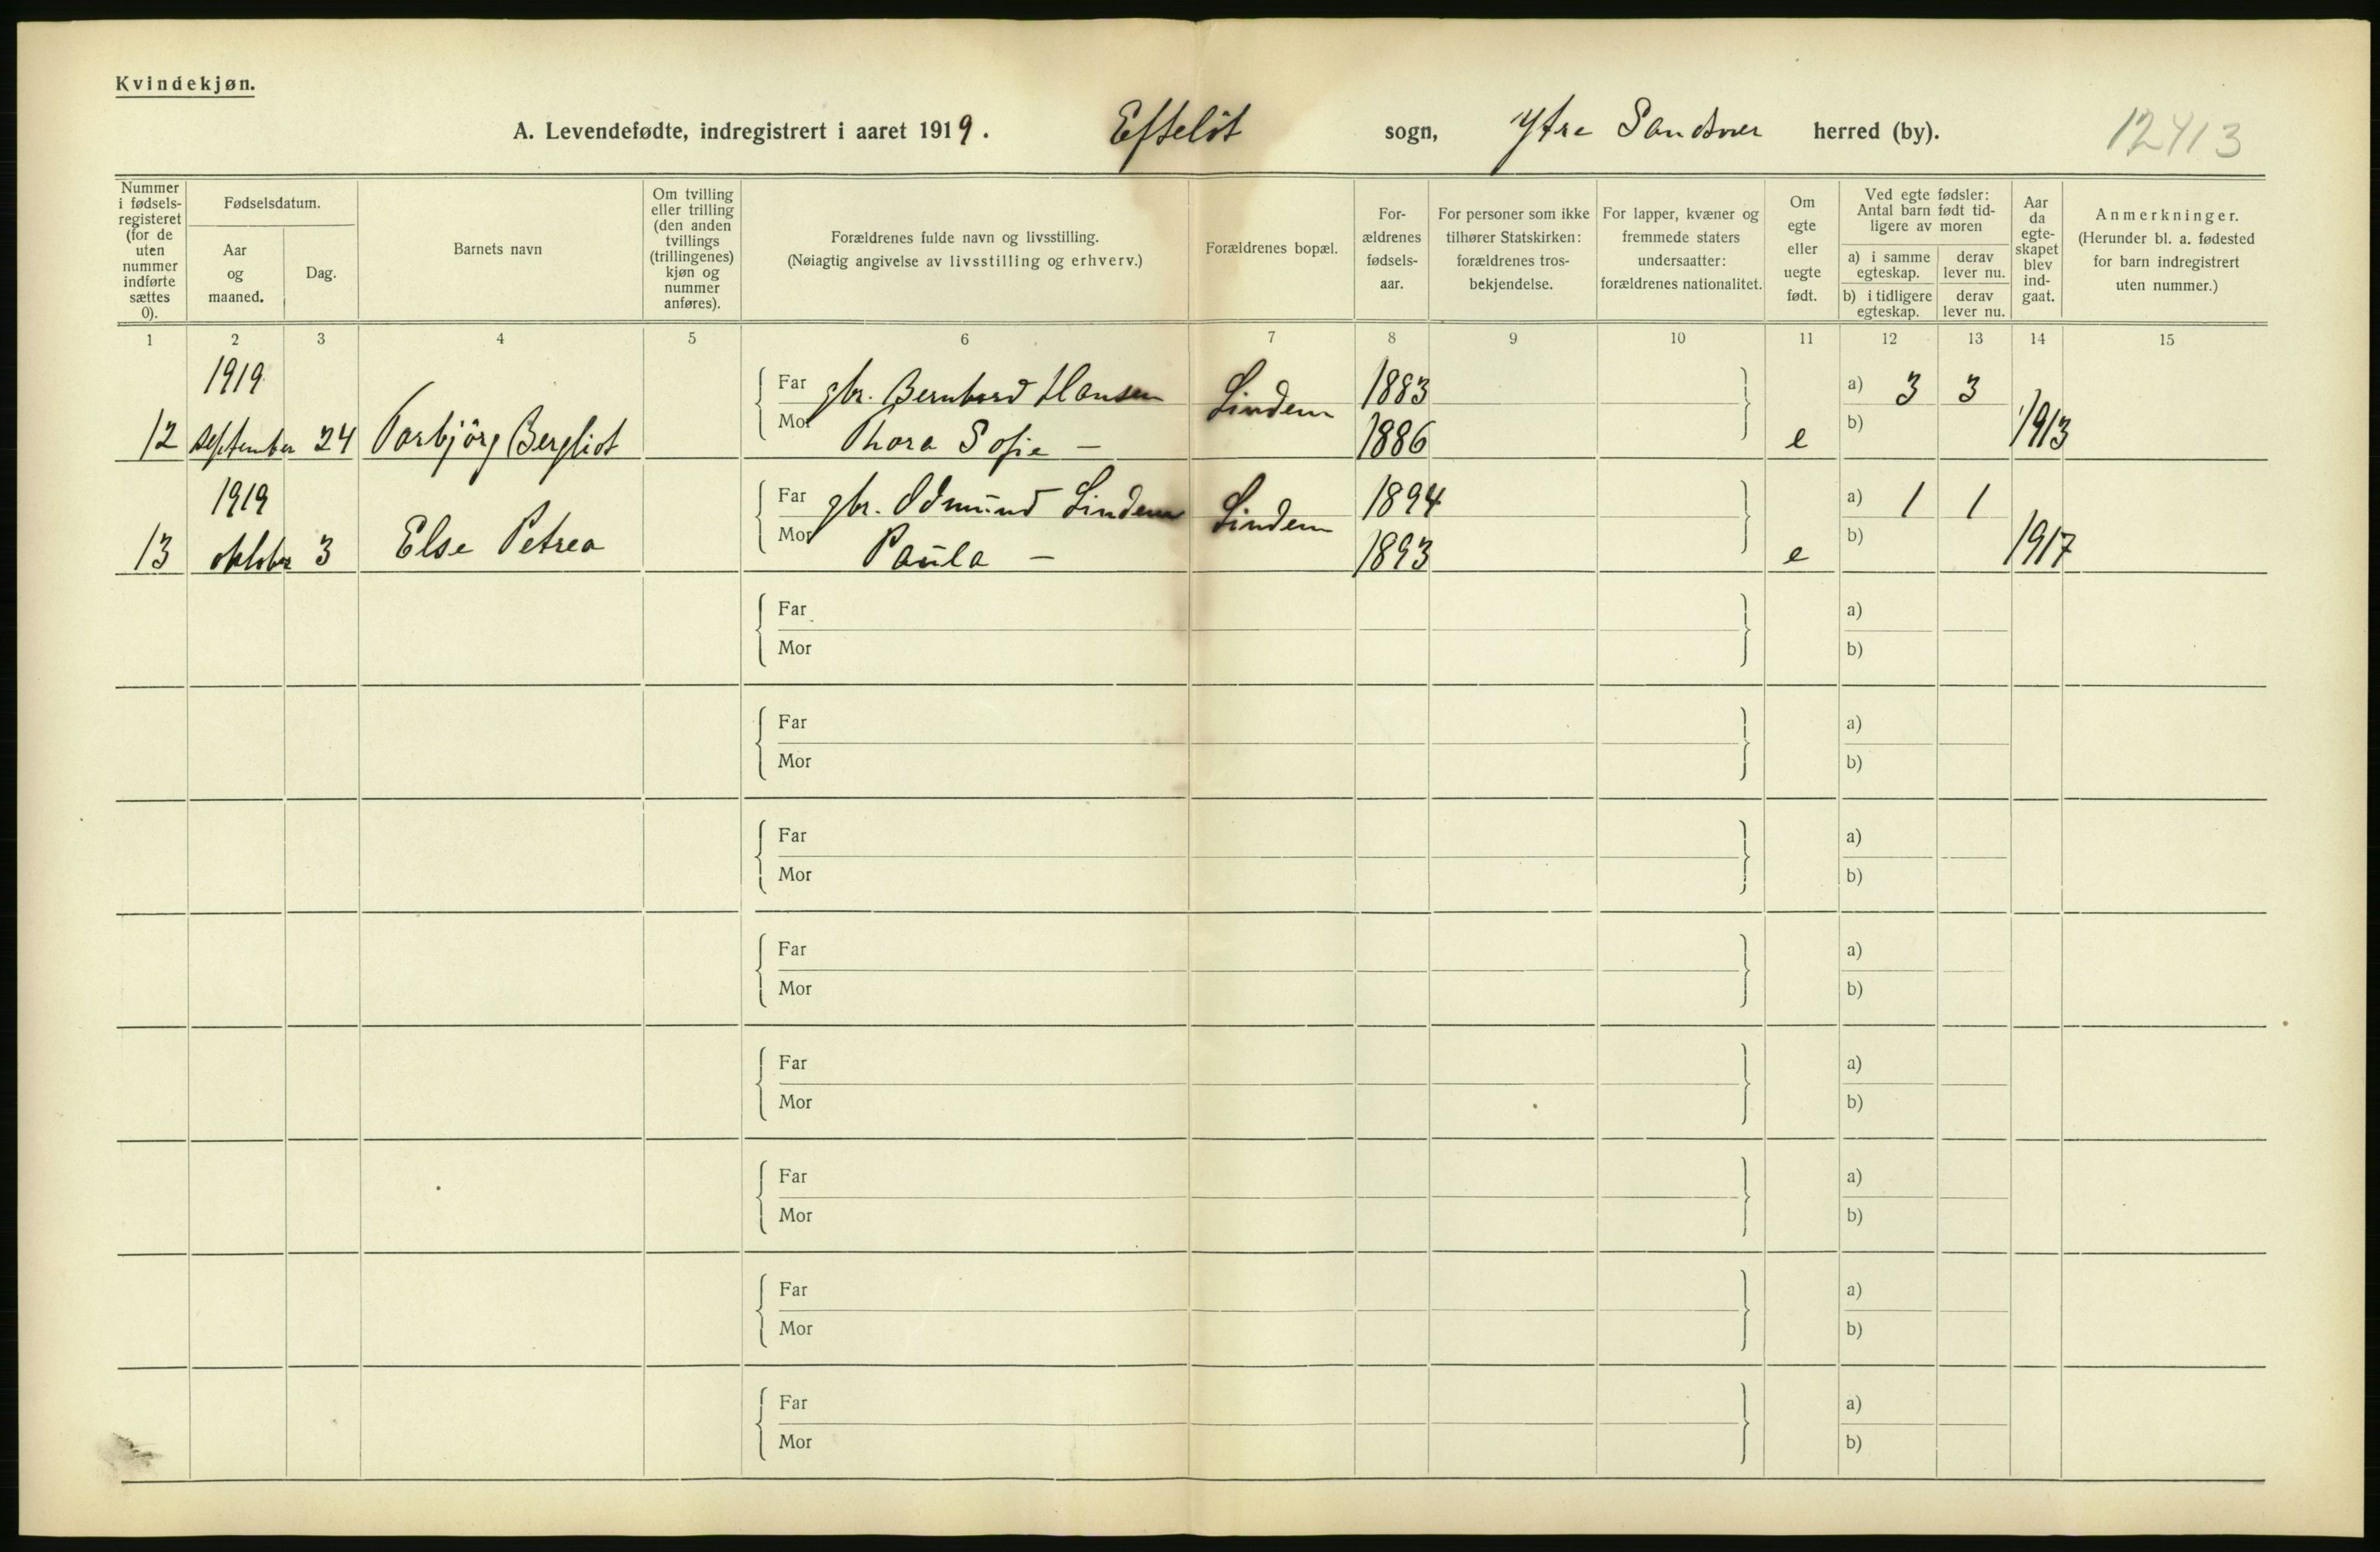 Kvindekjøn.
A. Levendefødte, indregistrert i aaret 1919. Efteløt sogn, Ytre Sandsver herred (by). 12413
Nummer i fødsels-registeret (for de uten nummer indførte sættes 0).
Fødselsdatum.
Aar og maaned.
Dag.
Barnets navn
Om tvilling eller trilling (den anden tvillings (trillingenes) kjøn og nummer anføres).
Forældrenes fulde navn og livsstilling.
(Nøiagtig angivelse av livsstilling og erhverv.)
Forældrenes bopæl.
For-ældrenes fødsels-aar.
For personer som ikke tilhører Statskirken: forældrenes tros-bekjendelse.
For lapper, kvæner og fremmede staters undersaatter: forældrenes nationalitet.
Om egte eller uegte født.
Ved egte fødsler: Antal barn født tid-ligere av moren
a) i samme egteskap.
derav lever nu.
b) i tidligere egteskap.
derav lever nu.
Aar da egte-skapet blev ind-gaat.
Anmerkninger.
(Herunder bl. a. fødested for barn indregistrert uten nummer.)
1 2 3 4 5 6 7 8 9 10 11 12 13 14 15
1919 Far gbr. Bernhard Hansen Lindem 1883 a) 3 3
12 september 24 Torbjörg Bergliot Mor Thora Sofie — 1886 e b) 1913
1919 Far gbr. Odmund Lindem Lindem 1894 a) 1 1
13 oktober 3 Else Petrea Mor Paula — 1893 e b) 1917
Far a)
Mor b)
Far a)
Mor b)
Far a)
Mor b)
Far a)
Mor b)
Far a)
Mor b)
Far a)
Mor b)
Far a)
Mor b)
Far a)
Mor b)